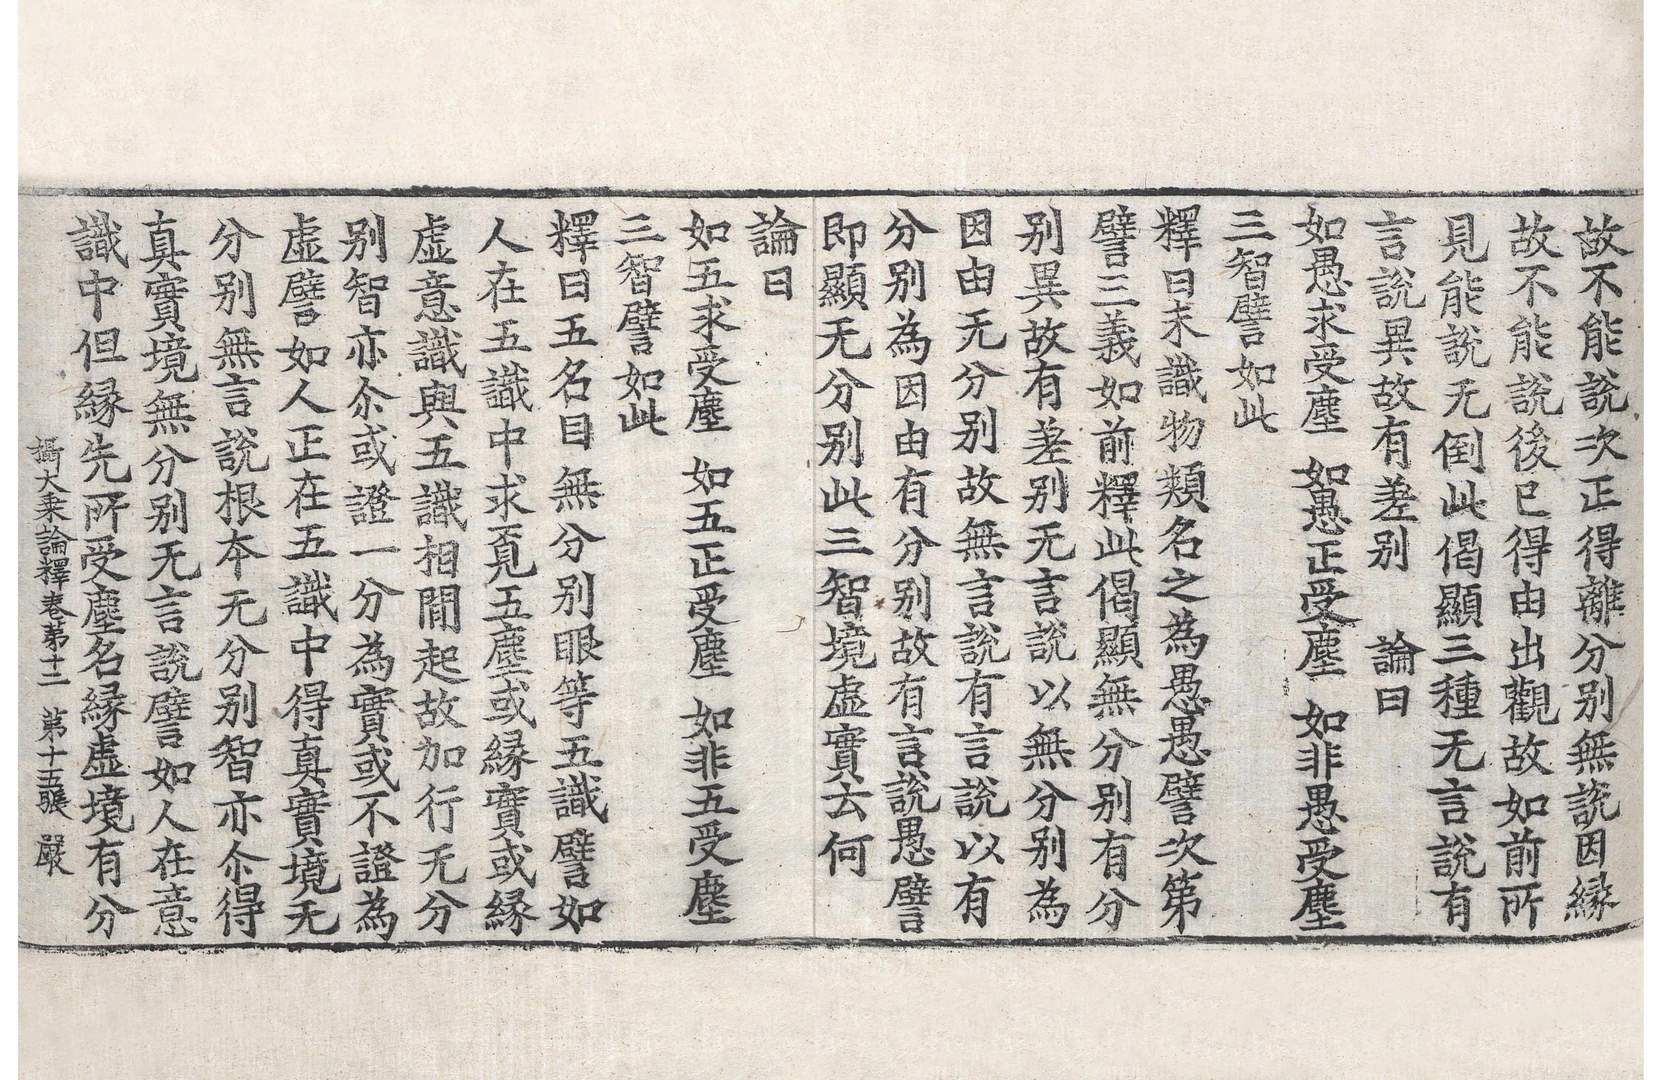 故不能說次正得離分別無說因緣
故不能說後已得由出觀故如前所
見能說无倒此偈顯三種无言說有
言說異故有差別　論曰
如愚求受塵　如愚正受塵　如非愚受塵
三智譬如此
釋曰未識物類名之為愚愚譬次第
譬三義如前釋此偈顯無分別有分
別異故有差別无言說以無分別為
因由无分別故無言說有言說以有
分別為因由有分別故有言說愚譬
即顯无分別此三智境虛實云何
論曰
如五求受塵　如五正受塵　如非五受塵
三智譬如此
釋曰五名目無分別眼等五識譬如
人在五識中求覔五塵或緣實或緣
虛意識與五識相間起故加行无分
別智亦尒或證一分為實或不證為
虛譬如人正在五識中得真實境无
分別無言說根本无分別智亦尒得
真實境無分別无言說譬如人在意
識中但緣先所受塵名緣虛境有分
攝大乘論釋卷第十二　第十五張　嚴